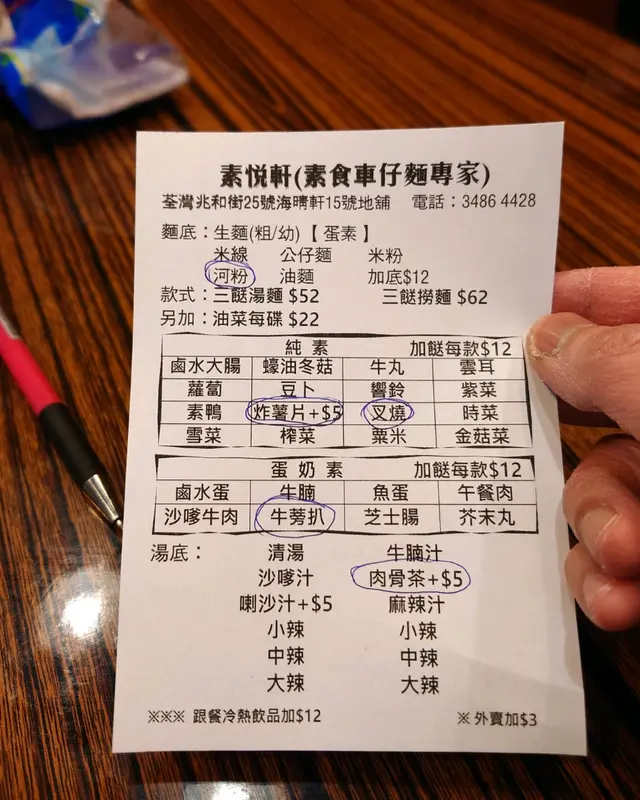 素悦軒(素食車仔麵專家)
荃灣兆和街25號海晴軒15號地舖 電話：3486 4428
麵底：生麵(粗/幼)【蛋素】
米線 公仔麵 米粉
河粉 油麵 加底$12
款式：三餸湯麵 $52 三餸撈麵 $62
另加：油菜每碟 $22
純素 加餸每款$12
鹵水大腸 蠔油冬菇 牛丸 雲耳
蘿蔔 豆卜 響鈴 紫菜
素鴨 炸薯片+$5 叉燒 時菜
雪菜 榨菜 粟米 金菇菜
蛋奶素 加餸每款$12
鹵水蛋 牛腩 魚蛋 午餐肉
沙嗲牛肉 牛蒡扒 芝士腸 芥末丸
湯底： 清湯 牛腩汁
沙嗲汁 肉骨茶+$5
喇沙汁+$5 麻辣汁
小辣 小辣
中辣 中辣
大辣 大辣
※※※ 跟餐冷熱飲品加$12 ※ 外賣加$3